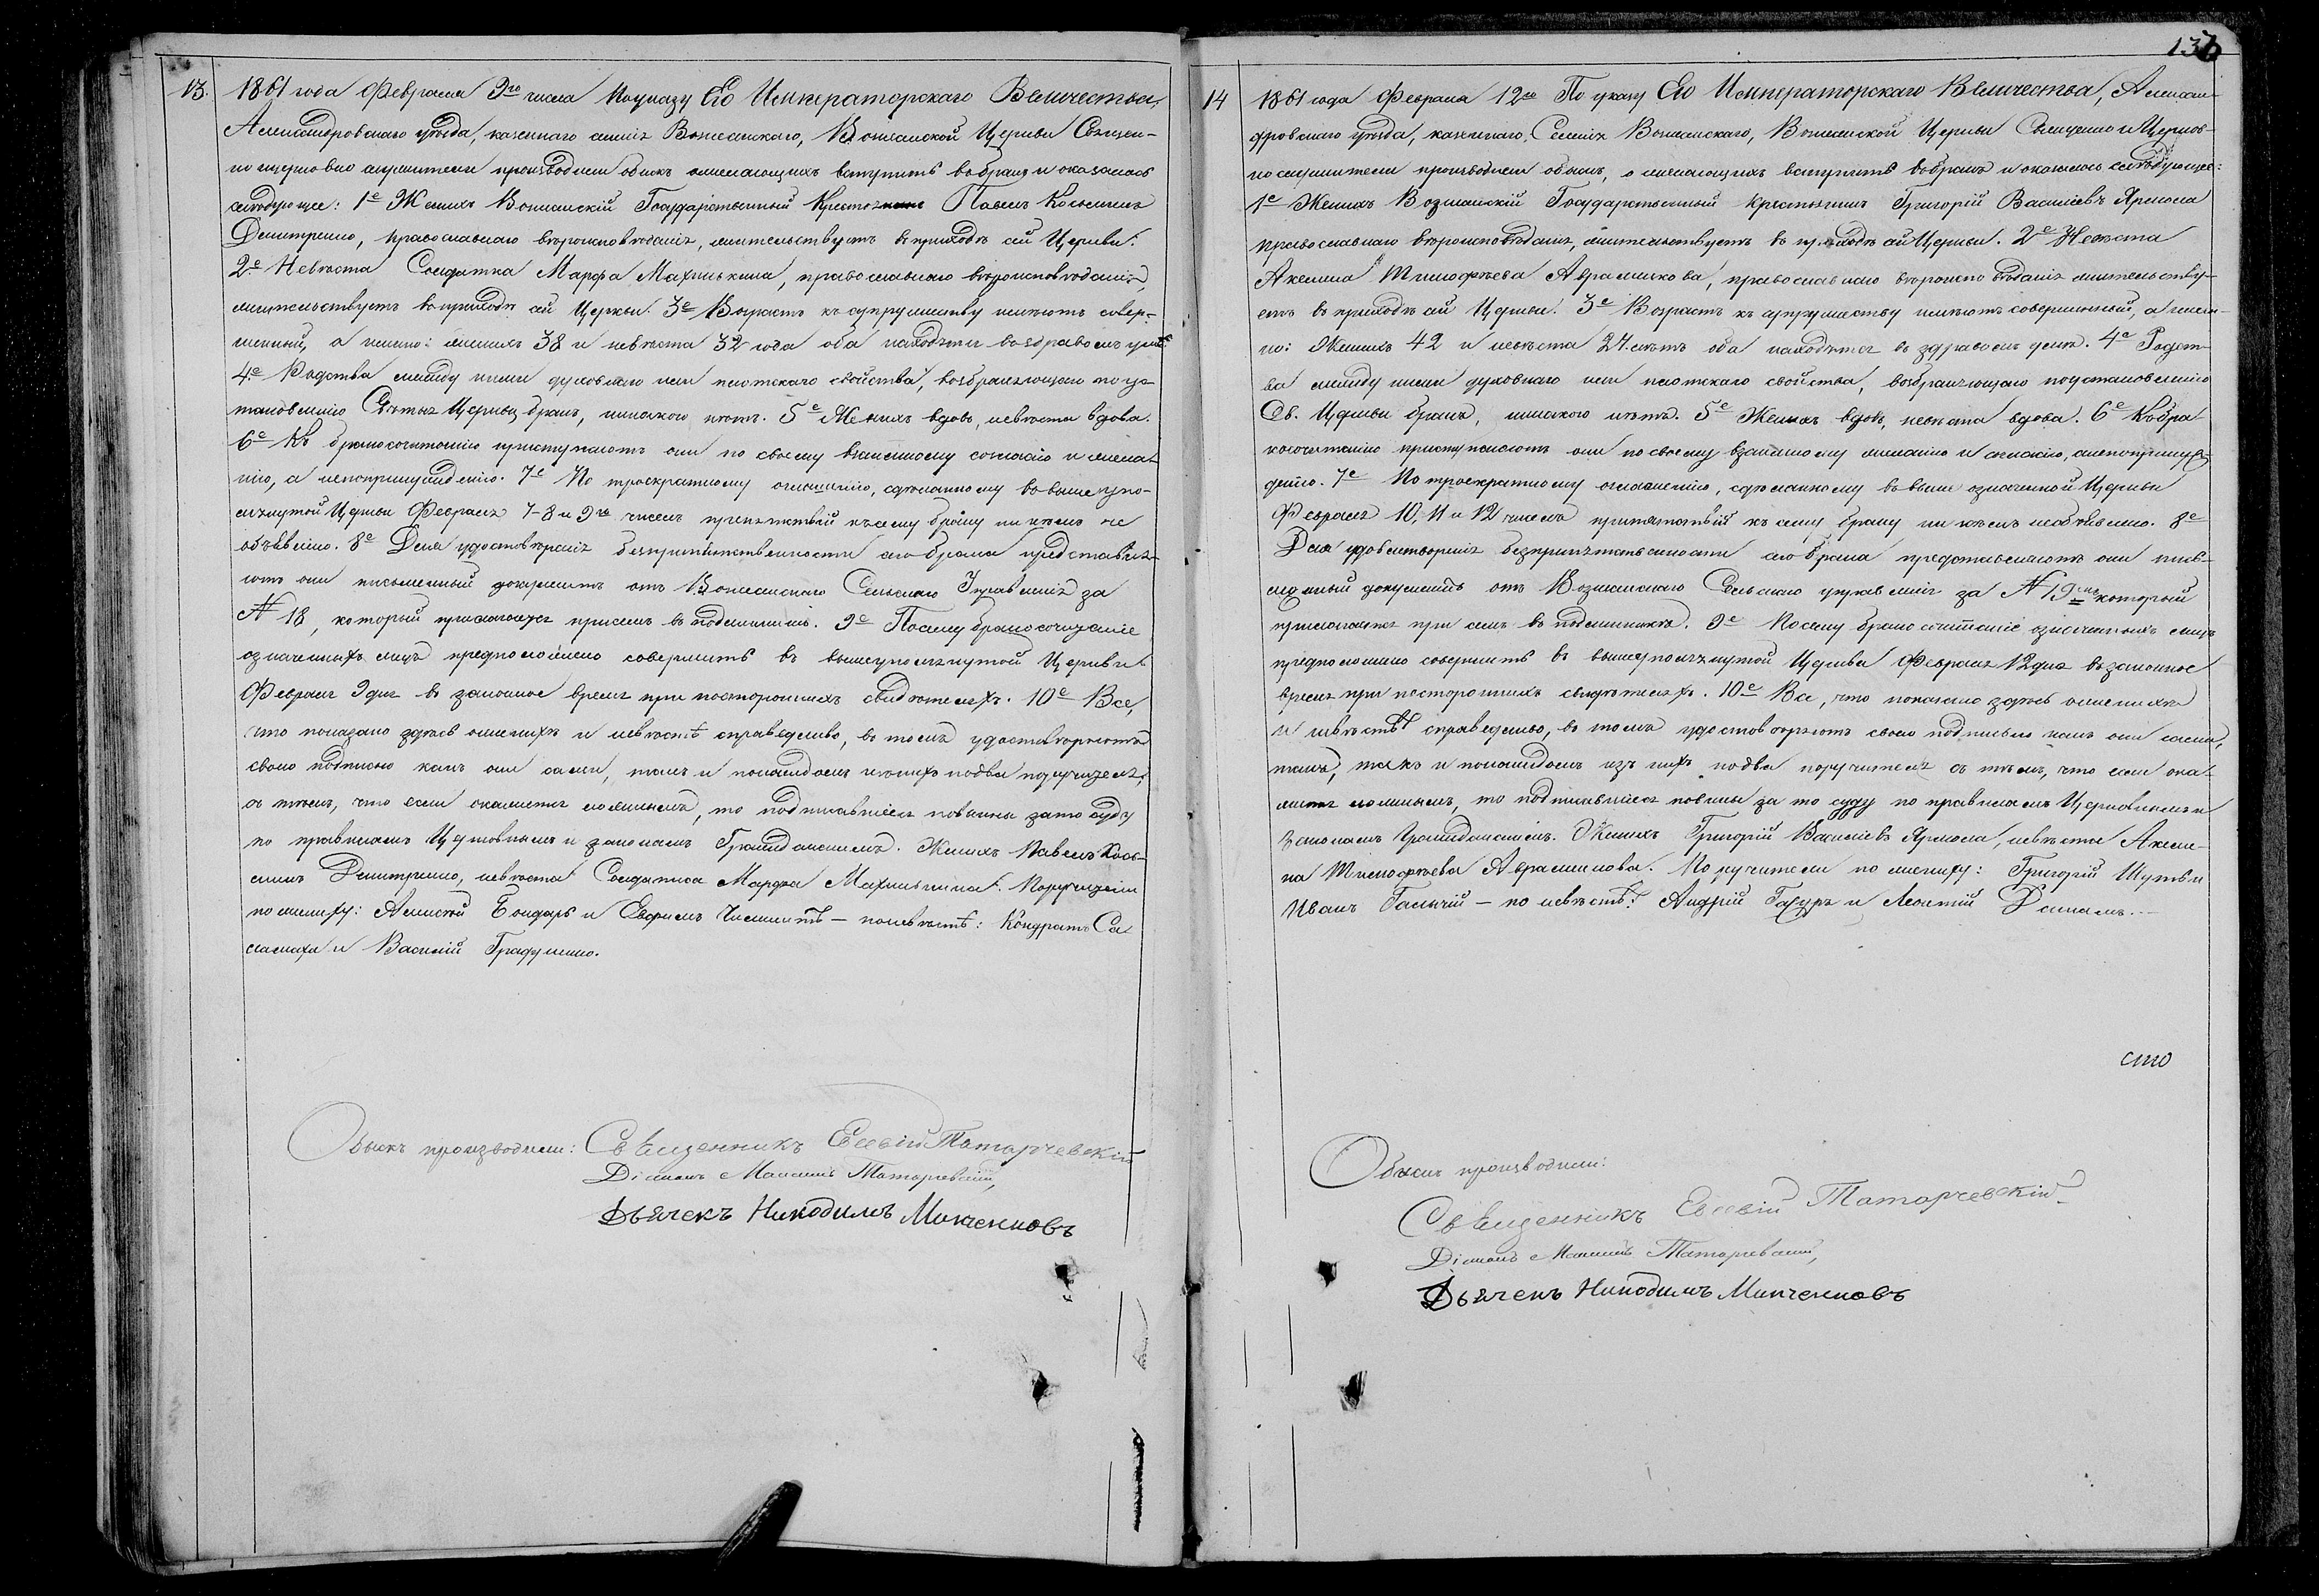 13.
1861 года Февраля 9го числа По указу Его Императорскаго Величества,
Александровскаго уѣзда, казеннаго селенія Вознесенскаго, Вознесенской Церкви Священ-
но церковно служители производили обыскъ о желающихъ вступить въ бракъ и оказалось
слѣдующее: 1е Женихъ Государственный Павелъ Косьминъ
Дмитренко, православнаго вѣроисповѣданія, жительствуетъ въ приходѣ сей Церкви.
2е Невѣста Солдатка Марфа Махинькина, православнаго вѣроисповѣданія,
жительствуетъ въ приходѣ сей Церкви. 3е Возрастъ къ супружеству имѣютъ совер-
шенный, а именно: женихъ 38 и невѣста 32 года оба находятся въ здравомъ умѣ.
4е Родства между ними духовнаго или плотскаго свойства, возбраняющаго по ус-
тановленію Святыя Церкви, бракъ, никакого нѣтъ. 5е Женихъ вдовъ, невѣста вдова.
6е Къ бракосочетанію приступаютъ они по своему взаимному согласію и жела-
нію, а не по принужденію. 7е По троекратному оглашенію, сдѣланному въ выше упо-
мянутой Церкви Февраля 7-8 и 9го чиселъ препятствій къ сему браку ни кѣмъ не
объявлено. 8е Для удостовѣренія безпрепятственности сего брака представля-
ютъ они письменный документъ отъ Сельскаго Управленія за
№ 18, который прилагается при семъ въ подлинникѣ. 9е Посему бракосочетаніе
означенныхъ лицъ предположено совершить въ вышеупомянутой Церкви
Февраля 9 дня въ законное время при постороннихъ свидѣтеляхъ. 10е Все,
что показано здѣсь о женихѣ и невѣстѣ справедливо, въ томъ удостовѣряютъ
своею подписью какъ они сами, такъ и по каждомъ изъ нихъ по два поручителя,
съ тѣмъ, что если окажется ложнымъ, то подписавшіеся повинны за то суду
по правиламъ Церковнымъ и законамъ Гражданскимъ. Женихъ Павелъ Кось-
минъ Дмитренко, невѣста Солдатка Марфа Махинькина. Поручители
по женихѣ: Алексѣй Бондарь и Ефимъ – по невѣстѣ: Кондратъ Са-
ламаха и Василій
Обыскъ производили: Священникъ Евсевій Татарчевскій
Діаконъ Татарчевскій,
Дьячекъ Никодимъ Минченковъ
136
14
1861 года Февраля 12го По указу Его Императорскаго Величества, Алексан-
дровскаго уѣзда, казеннаго Селенія Вознесенскаго, Вознесенской Церкви Священно и Церков-
но служители производили обыскъ, о желающихъ вступить въ бракъ и оказалось слѣдующее:
1е Женихъ Государственный крестьянинъ Григорій Васильевъ Ярмола
православнаго вѣроисповѣданія, жительствуетъ въ приходѣ сей Церкви. 2е Невѣста
Акелина Тимофѣева Авраменкова, православнаго вѣроисповѣданія жительству-
етъ въ приходѣ сей Церкви. 3е Возрастъ къ супружеству имѣютъ совершенный, а имен-
но: Женихъ 42 и невѣста 27 лѣтъ оба находятся въ здравомъ умѣ. 4е Родст-
ва между ними духовнаго или плотскаго свойства, возбраняющаго по установленію
Св. Церкви бракъ, никакого нѣтъ. 5е Женихъ вдовъ, невѣста вдова. 6е Къ бра-
косочетанію приступаютъ они по своему взаимному желанію и согласію, а не по принуж-
денію. 7е По троекратному оглашенію, сдѣланному въ выше означенной Церкви
Февраля 10, 11 и 12 чиселъ препятствій къ сему браку ни кѣмъ не объявлено. 8е
Для удовлетворенія безпрепятственности сего брака представляютъ они пись-
менный документъ отъ Сельскаго управленія за № 19 который
прилагается при семъ въ подлинникѣ. 9е Посему бракосочетаніе означенныхъ лицъ
предположено совершить въ вышеупомянутой Церкви Февраля 12 дня въ законное
время при постороннихъ свидѣтеляхъ. 10е Все, что показано здѣсь о женихѣ
и невѣстѣ справедливо, въ томъ удостовѣряютъ своею подписью какъ они сами,
такъ и по каждомъ изъ нихъ по два поручителя съ тѣмъ, что если ока-
жется ложнымъ, то подписавшіеся повинны за то суду по правиламъ Церковнымъ и
законамъ Гражданскимъ. Женихъ Григорій Васильевъ Ярмола, невѣста Акели-
на Тимофѣева Авраменкова. Поручители по женихѣ: Григорій Шуть и
Иванъ – по невѣстѣ: Андрій и Леонтій
сто
Обыскъ производили:
Священникъ Евсевій Татарчевскій
Діаконъ Татарчевскій,
Дьячекъ Никодимъ Минченковъ